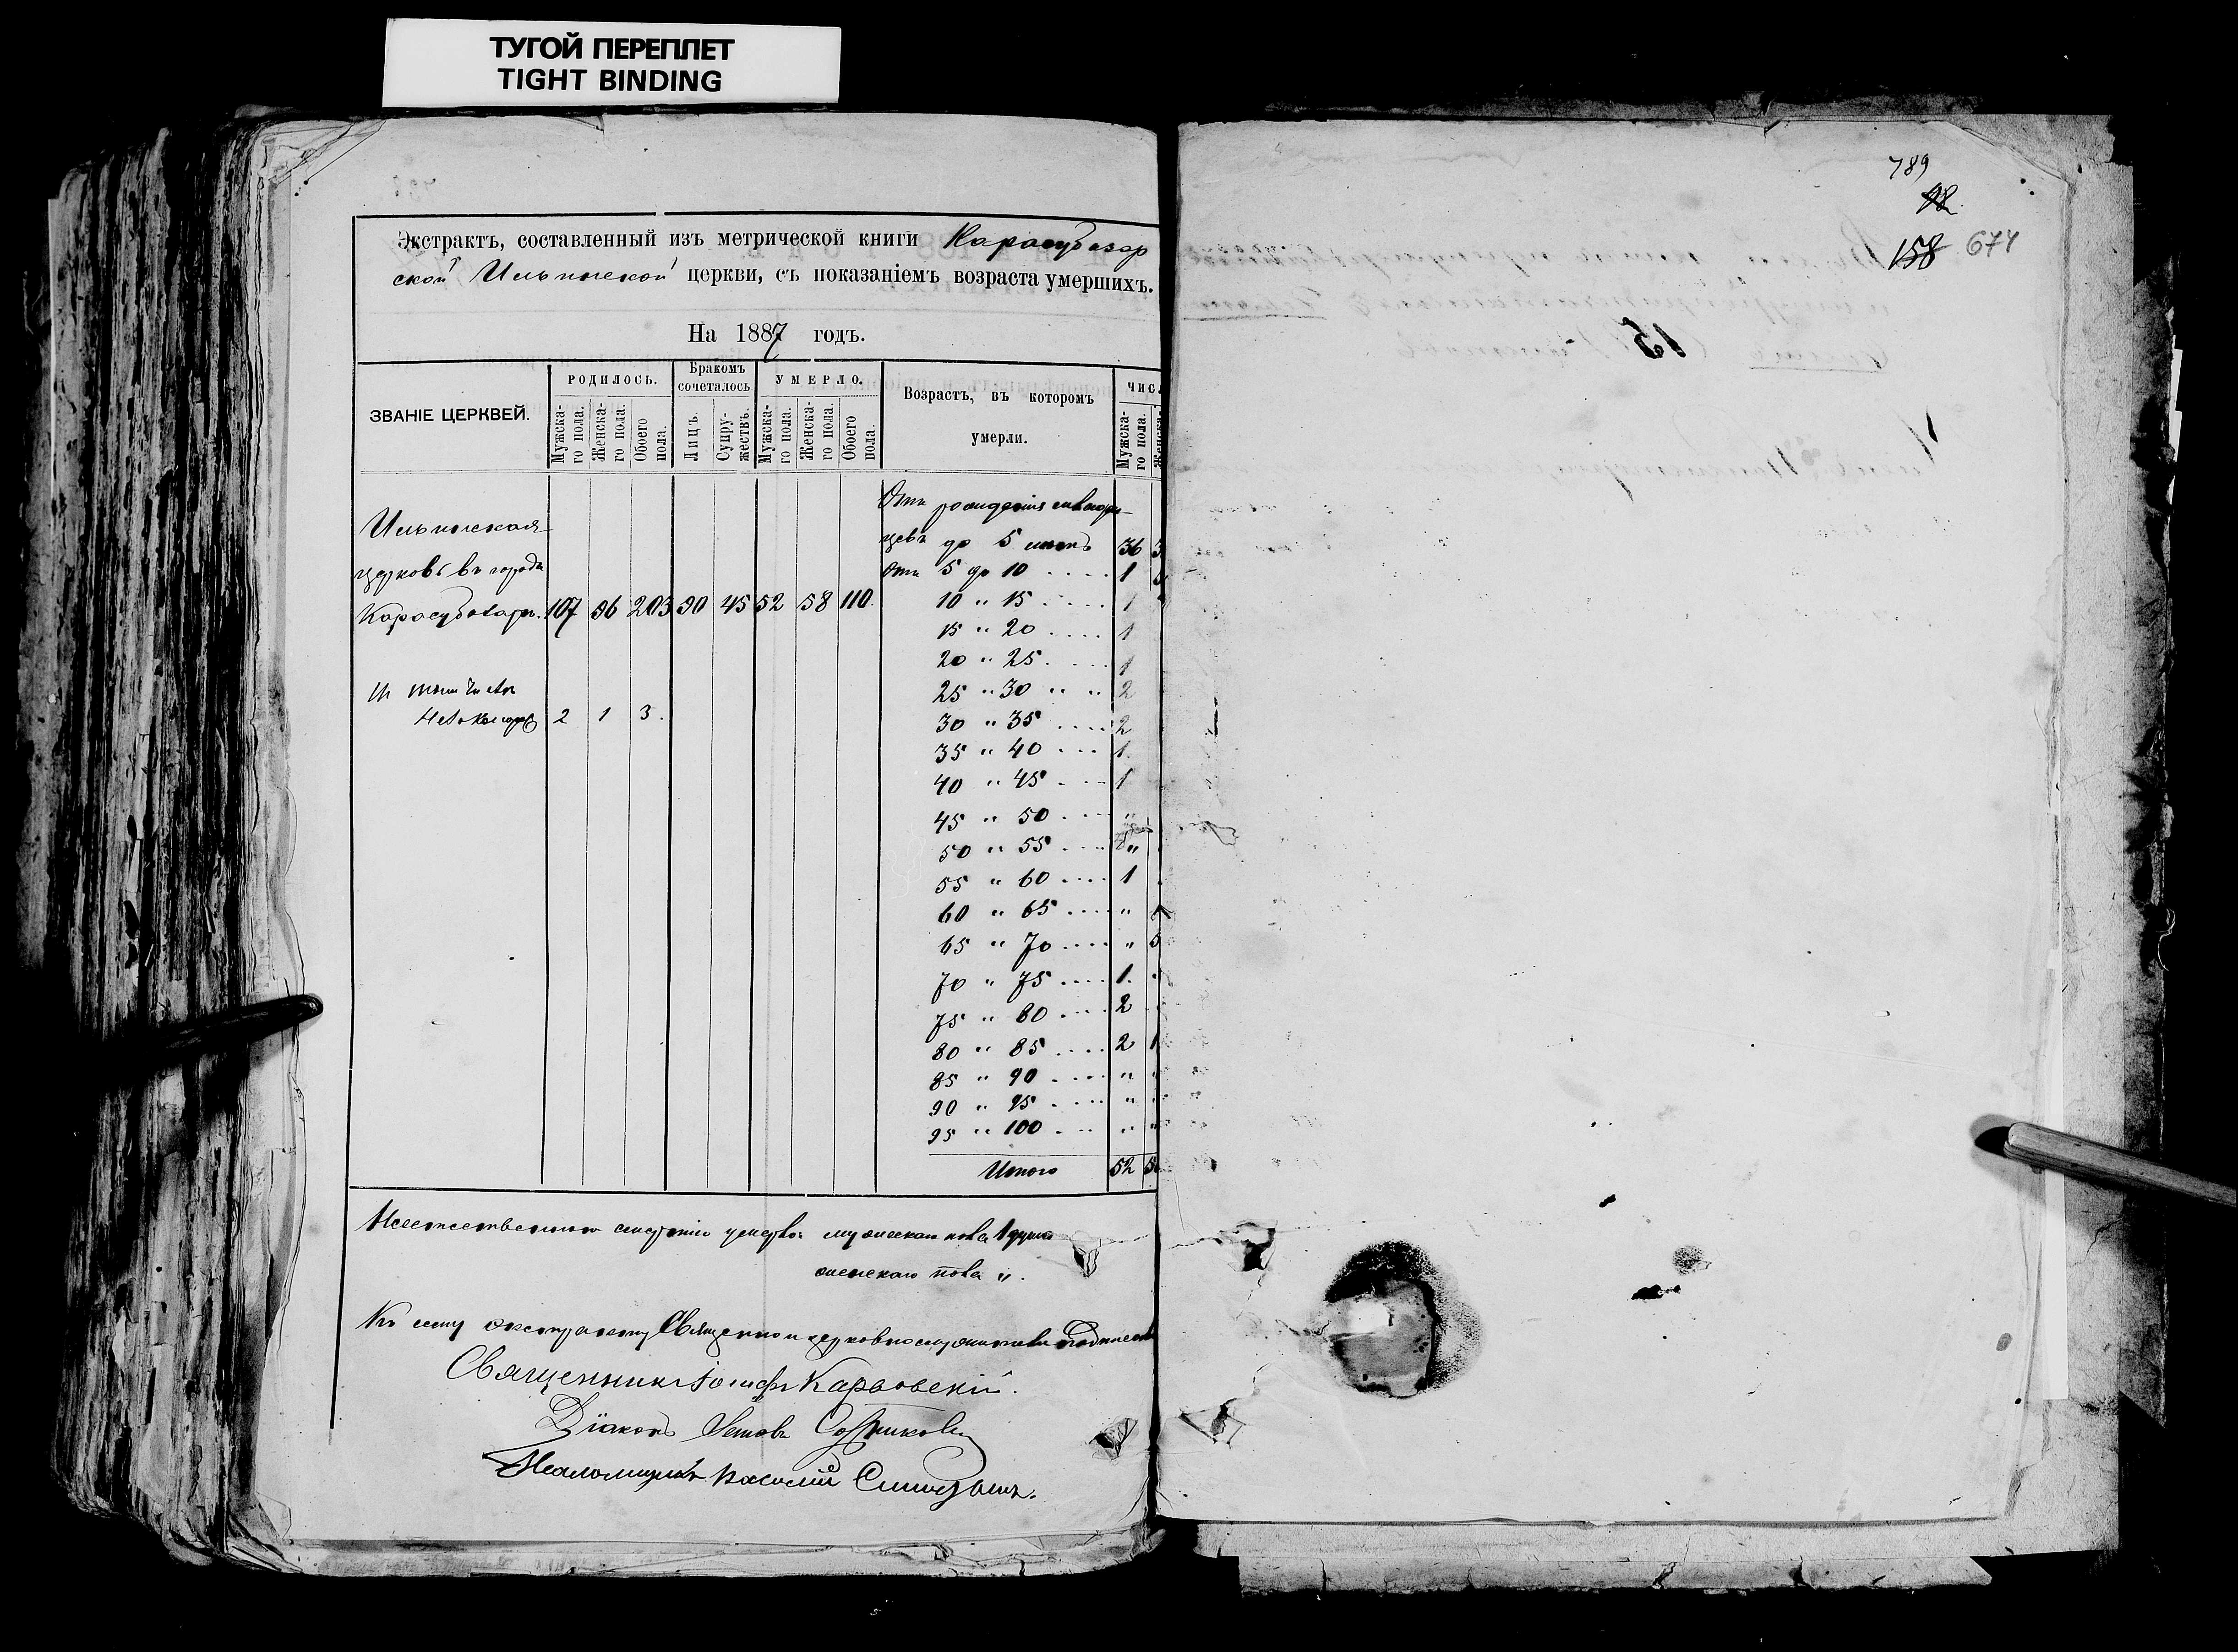 ТУГОЙ ПЕРЕПЛЕТ
TIGHT BINDING
Экстрактъ, составленный изъ метрической книги Карасубазар
ской Ильинской церкви, съ показаніемъ возраста умершихъ.
На 1887 годъ.
ЗВАНІЕ ЦЕРКВЕЙ.
РОДИЛОСЬ.
Бракомъ сочеталось.
УМЕРЛО.
Возрастъ, въ которомъ умерли.
ЧИСЛ
Мужска-го пола.
Женска-го пола.
Обоего пола.
Лицъ.
Супру-жествъ.
Мужска-го пола.
Женска-го пола.
Обоего пола.
Мужска-го пола.
Женска
Ильинская
церковь въ городѣ
Карасубазарѣ. 107 96 203 90 45 52 58 110.
въ томъ числѣ
2 1 3.
Отъ рожденія младен-
цевъ до 5 лѣтъ 36 3
Отъ 5 до 10 .... 1
10 " 15 .... 1
15 " 20 .... 1
20 " 25 .... 1
25 " 30 " " 2
30 " 35 .... 2
35 " 40 ... 1.
40 " 45 ... 1
45 " 50 .... "
50 " 55 .... "
55 " 60 .... 1
60 " 65 .... "
65 " 70 .... " 5
70 " 75 .... 1.
75 " 80 .... 2
80 " 85 .... 2 1
85 " 90 .... " "
90 " 95 .... " "
95 " 100 ... " "
Итого 52 5
Неестественною смертію умерло: мужескаго пола 1 душа
женскаго пола ".
Къ сему экстракту Священно и церковнослужители подписа
Священникъ Іосифъ Карповскій.
Діаконъ Сотниковъ
Псаломщикъ Василій
789
98
158
674
15